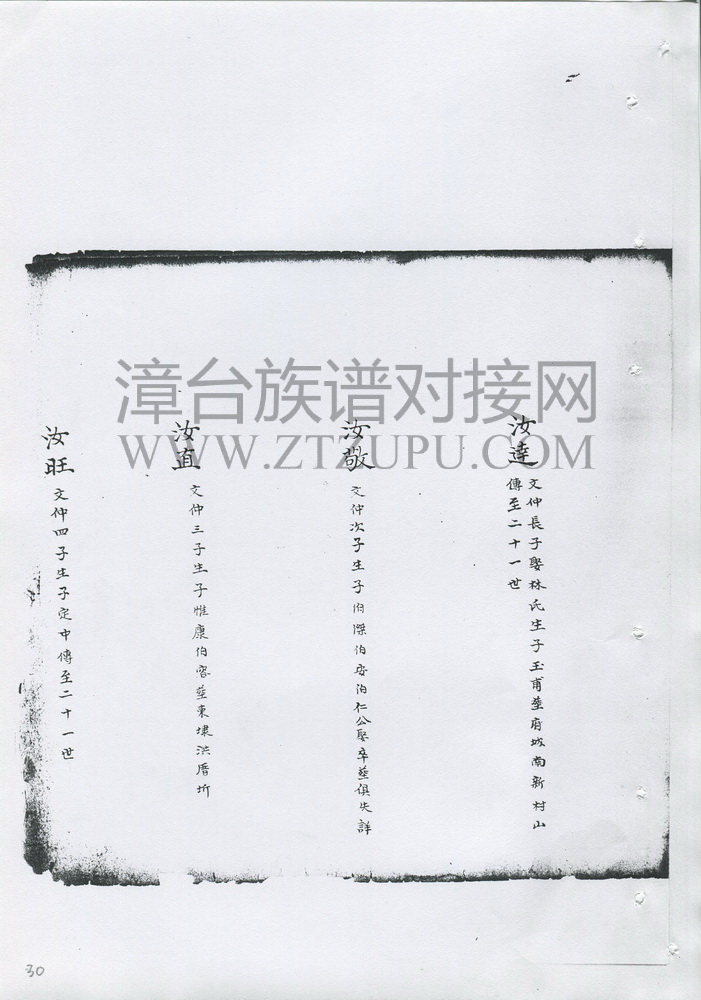 漳台族谱对接网
WWW.ZTZUPU.COM
汝達
文仲長子娶林氏生子玉甫葬府城南新村山
傳至二十一世
汝敬
文仲次子生子伯傑伯安伯仁公娶卒葬俱失詳
汝直
文仲三子生子惟康伯容葬東埭洪厝圻
汝旺
文仲四子生子定中傳至二十一世
30